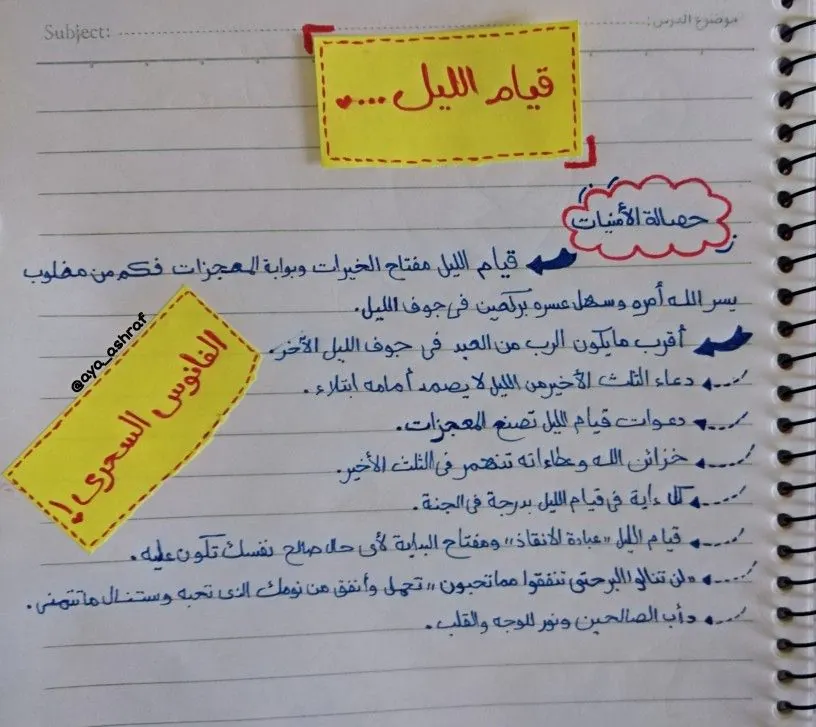 Subject:
موضوع الدرس:
قيام الليل ....
حصالة الأمنيات
قيام الليل مفتاح الخيرات وبوابة المعجزات فكم من مغلوب
يسر الله أمره وسهل عسره بركعتين في جوف الليل.
أقرب ما يكون الرب من العبد في جوف الليل الآخر.
@aya_ashraf
الفانوس السحرى!
دعاء الثلث الأخير من الليل لا يصمد أمامه ابتلاء.
دعوات قيام الليل تصنع المعجزات.
خزائن الله وعطاءاته تنهمر في الثلث الأخير.
كل ءاية في قيام الليل بدرجة في الجنة.
قيام الليل "عبادة الانقاذ" ومفتاح البداية لأى حال صالح نفسك تكون عليه.
"لن تنالوا البر حتى تنفقوا مما تحبون" تحمل وأنفق من نومك الذى تحبه وستنال ما تتمنى.
دأب الصالحين ونور للوجه والقلب.